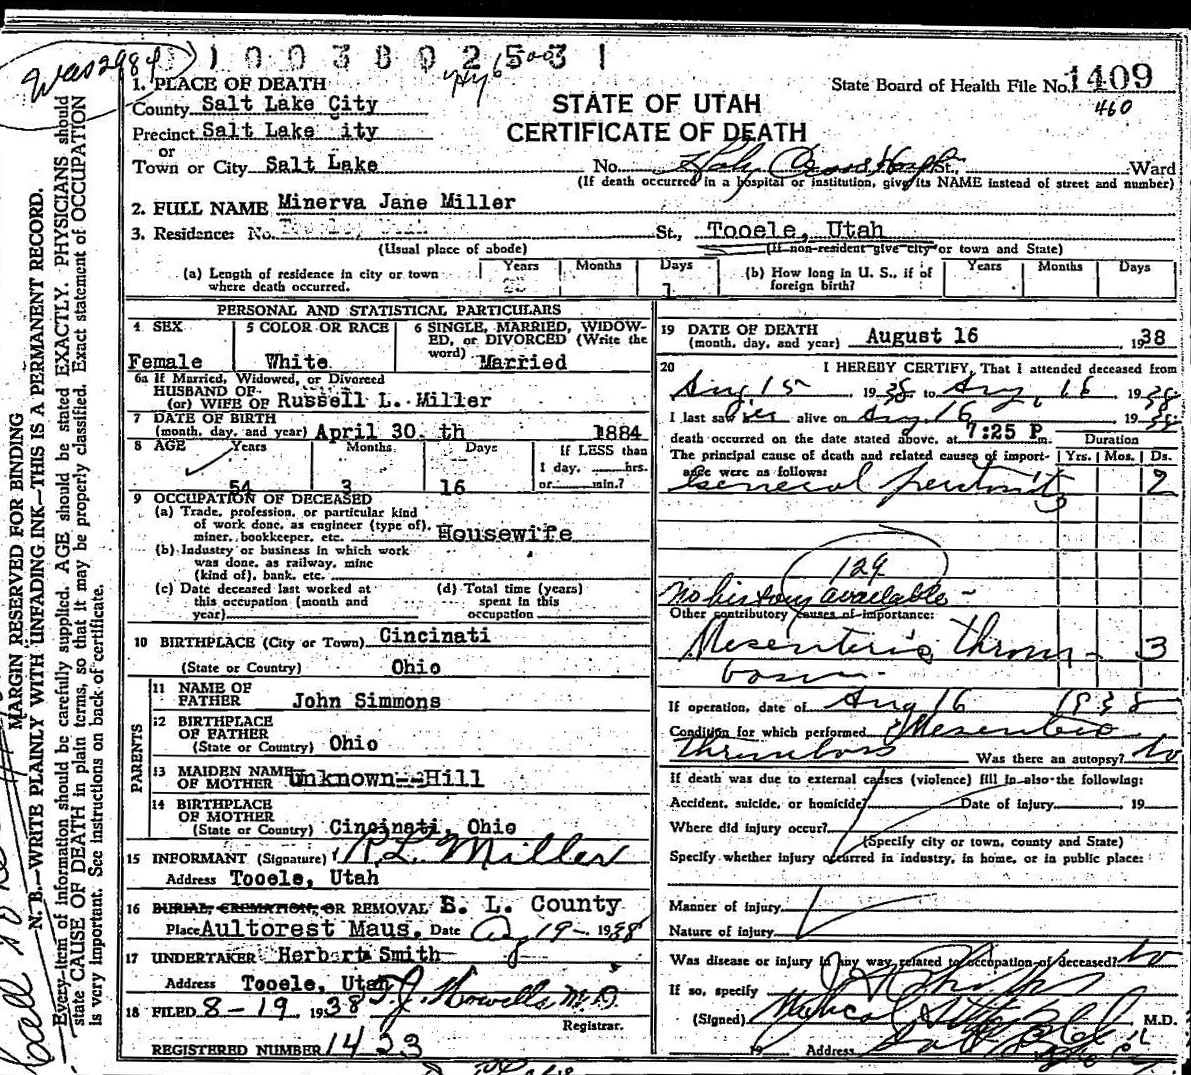 Was 2984
1003802531
1. PLACE OF DEATH
State Board of Health File No. 1409
460
County Salt Lake City
Precinct Salt Lake ity
or
Town or City Salt Lake
STATE OF UTAH
CERTIFICATE OF DEATH
No. Holy Cross Hosp St., Ward
(If death occurred in a hospital or institution, give its NAME instead of street and number)
2. FULL NAME Minerva Jane Miller
3. Residence: No. St., Tooele, Utah
(Usual place of abode) (If non-resident give city or town and State)
(a) Length of residence in city or town where death occurred. Years Months Days 1
(b) How long in U. S., if of foreign birth? Years Months Days
PERSONAL AND STATISTICAL PARTICULARS
4 SEX Female
5 COLOR OR RACE White
6 SINGLE, MARRIED, WIDOWED, OR DIVORCED (Write the word) Married
6a If Married, Widowed, or Divorced
HUSBAND OF
(or) WIFE OF Russell L. Miller
7 DATE OF BIRTH
(month, day, and year) April 30 th 1884
8 AGE Years Months Days If LESS than
1 day, hrs.
54 3 16 or min.?
9 OCCUPATION OF DECEASED
(a) Trade, profession, or particular kind
of work done, as engineer (type of),
miner, bookkeeper, etc. Housewife
(b) Industry or business in which work
was done, as railway, mine
(kind of), bank, etc.
(c) Date deceased last worked at
this occupation (month and
year)
(d) Total time (years)
spent in this
occupation
10 BIRTHPLACE (City or Town) Cincinati
(State or Country) Ohio
PARENTS
11 NAME OF
FATHER John Simmons
12 BIRTHPLACE
OF FATHER
(State or Country) Ohio
13 MAIDEN NAME
OF MOTHER Unknown--Hill
14 BIRTHPLACE
OF MOTHER
(State or Country) Cincinati, Ohio
15 INFORMANT (Signature) R L Miller
Address Tooele, Utah
16 BURIAL, CREMATION, OR REMOVAL S. L. County
Place Aultorest Maus. Date Aug 19 - 1938
17 UNDERTAKER Herbert Smith
Address Tooele, Utah
18 FILED 8-19 1938 T.J. Howells M.D.
Registrar.
REGISTERED NUMBER 1423
19 DATE OF DEATH
(month, day, and year) August 16, 1938
20 I HEREBY CERTIFY, That I attended deceased from
Aug 15 1938 to Aug 16 1938
I last saw her alive on Aug 16 1938
death occurred on the date stated above, at 7:25 P m. Duration
The principal cause of death and related causes of import- Yrs. Mos. Ds.
ance were as follows:
General peritonitis 2
129
No history available -
Other contributory causes of importance:
Mesenteric throm- 3
bosis
If operation, date of Aug 16 1938
Condition for which performed Mesenteric
thrombosis Was there an autopsy? No
If death was due to external causes (violence) fill in also the following:
Accident, suicide, or homicide? Date of injury , 19
Where did injury occur?
(Specify city or town, county and State)
Specify whether injury occurred in industry, in home, or in public place:
Manner of injury
Nature of injury
Was disease or injury in any way related to occupation of deceased? No
If so, specify
(Signed) M.D.
19 Address
MARGIN RESERVED FOR BINDING
N. B.—WRITE PLAINLY WITH UNFADING INK—THIS IS A PERMANENT RECORD.
Every item of information should be carefully supplied. AGE should be stated EXACTLY. PHYSICIANS should
state CAUSE OF DEATH in plain terms, so that it may be properly classified. Exact statement of OCCUPATION
is very important. See instructions on back of certificate.